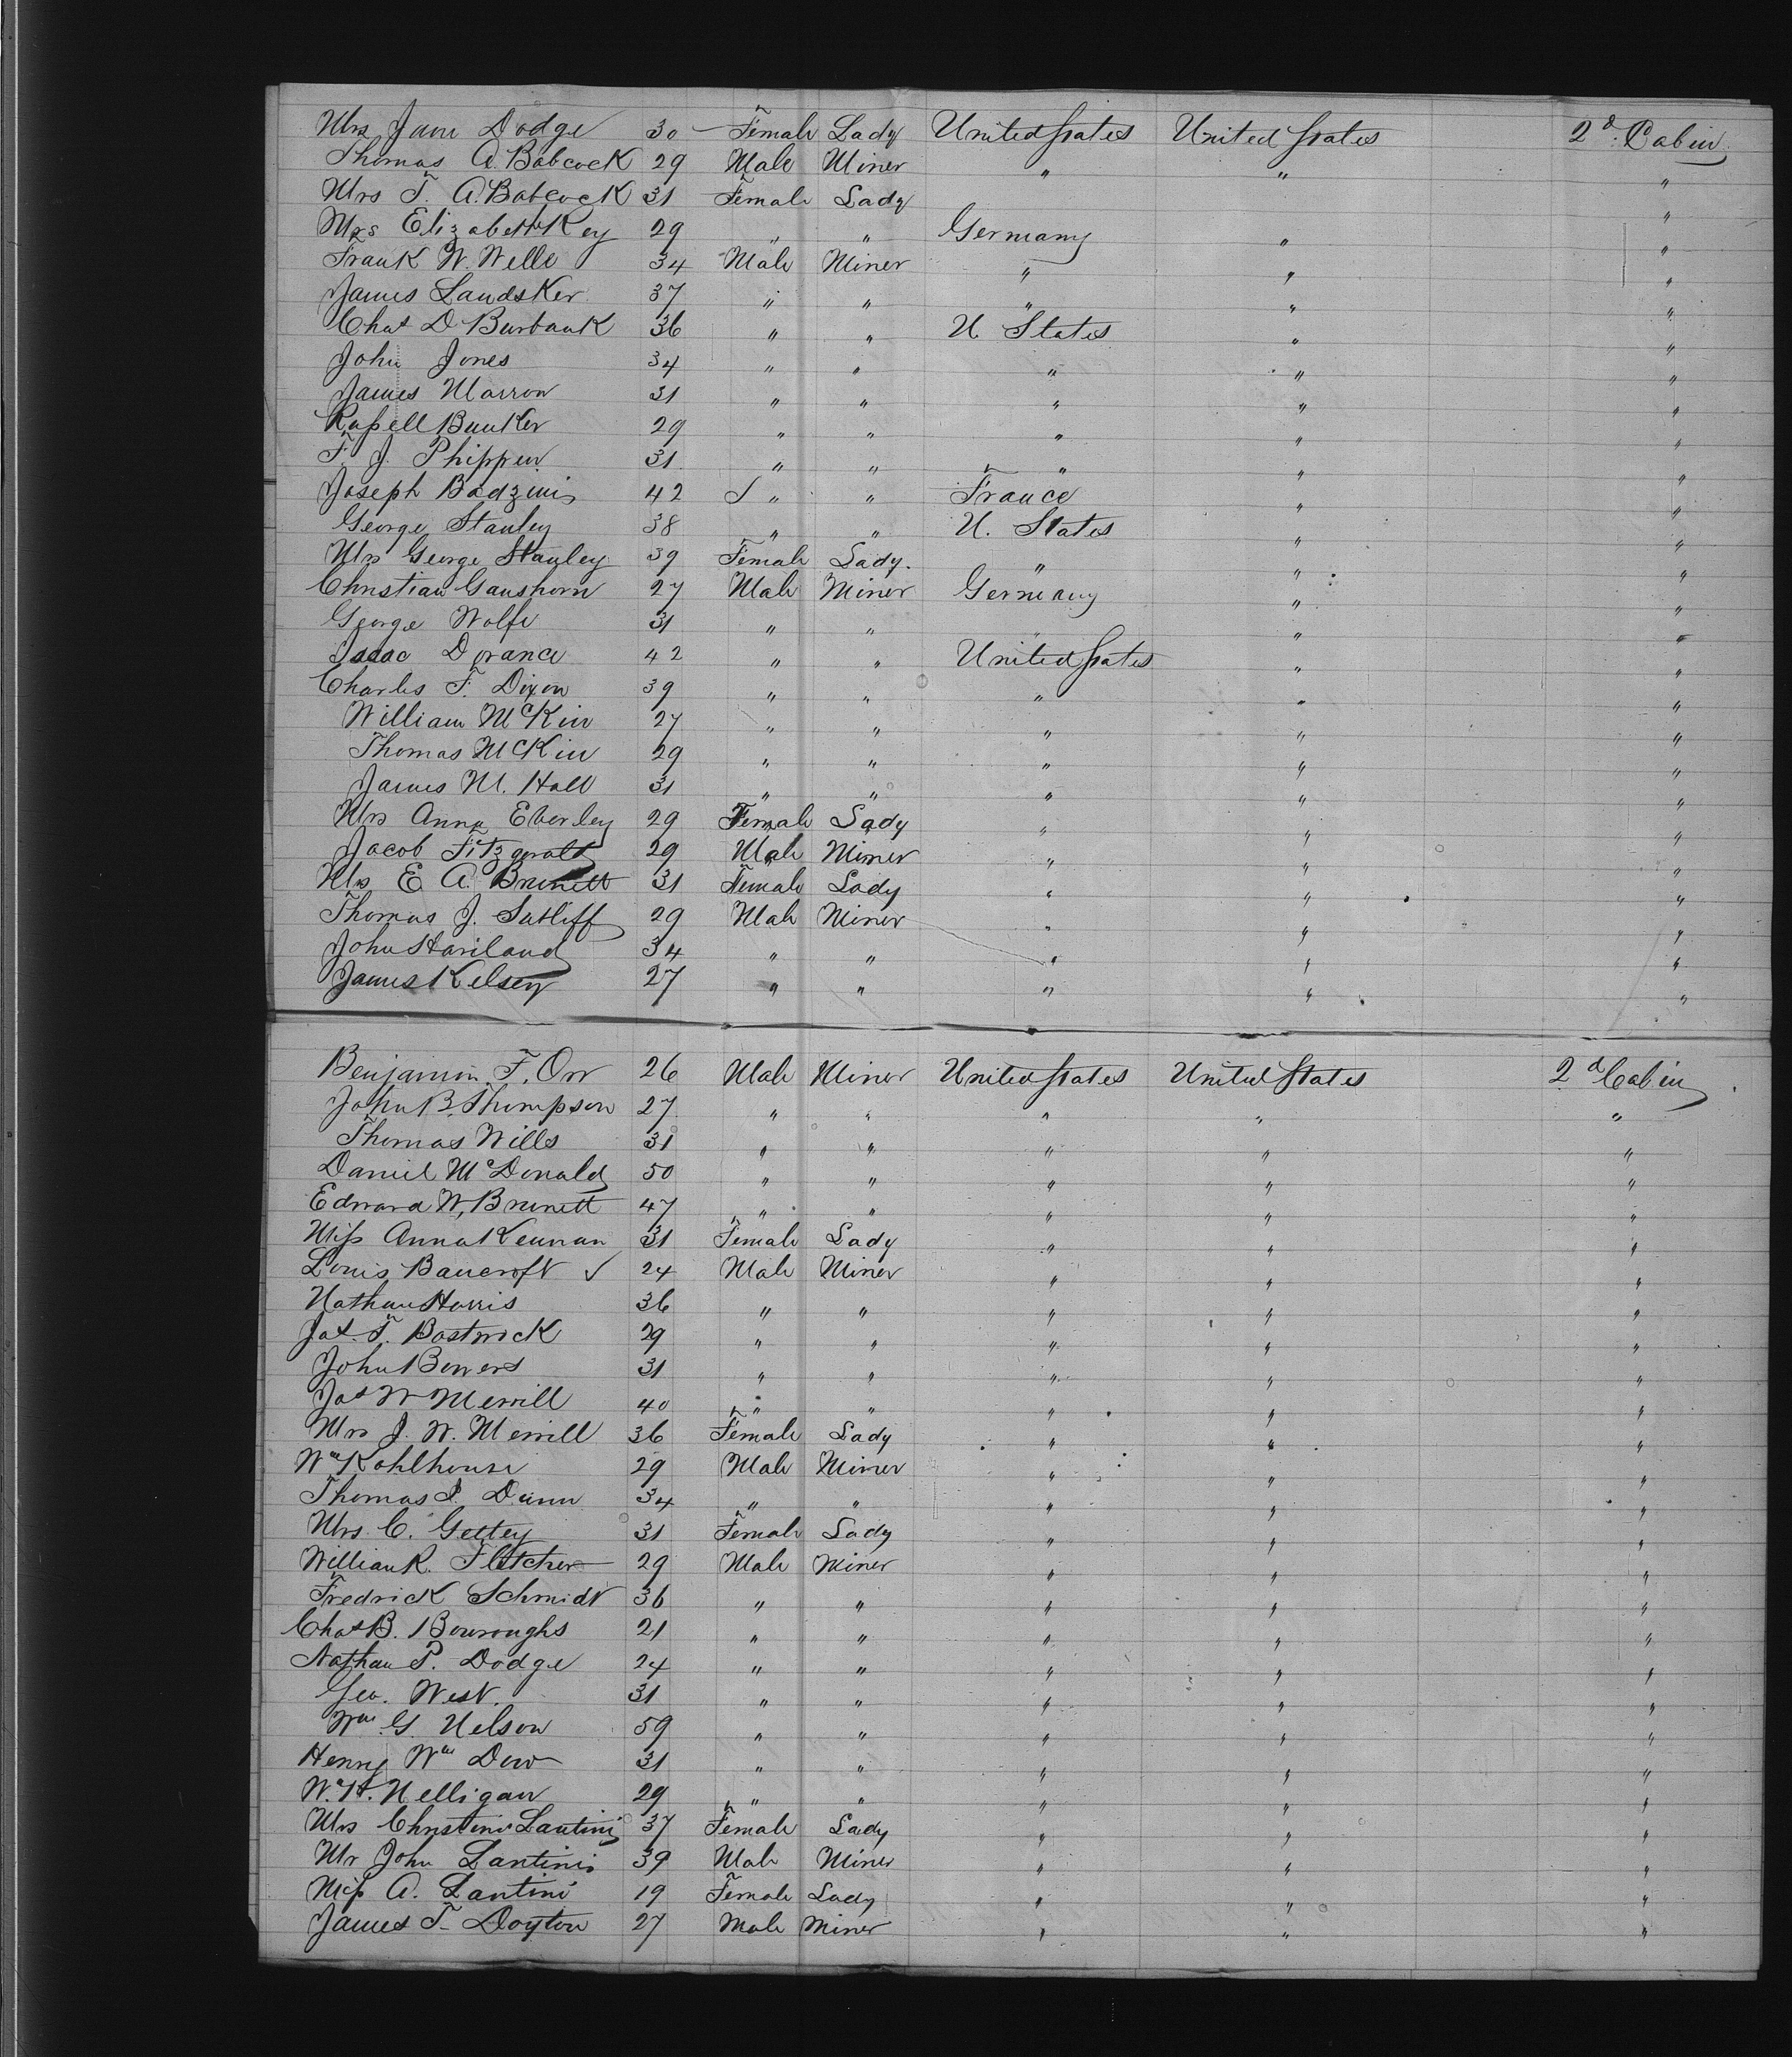 Mrs Jane Dodge 30 Female Lady United States United States 2d Cabin
Thomas A. Babcock 29 Male Miner " " "
Mrs T. A. Babcock 31 Female Lady "
Mrs Elizabeth Key 29 " " Germany " "
Frank W. Welle 34 Male Miner " " "
James Landsker 37 " " " " "
Chas D Burbank 36 " " U States " "
John Jones 34 " " " " "
James Marron 31 " " " " "
Russell Bunker 29 " " " " "
F. J. Phippen 31 " " " " "
Joseph 42 " " France " "
George Stanley 38 " " U. States " "
Mrs George Stanley 39 Female Lady. " " "
Christian Ganshorn 27 Male Miner Germany " "
George Wolfe 31 " " " " "
Isaac Dorance 42 " " United States " "
Charles F. Dixon 39 " " " " "
William McKin 27 " " " " "
Thomas McKin 29 " " " " "
James M. Hall 31 " " " " "
Mrs Anna Eberley 29 Female Lady " " "
Jacob Fitzgerald 29 Male Miner " " "
Mrs E A. Brunett 31 Female Lady " " "
Thomas J. Sutliff 29 Male Miner " " "
John Haviland 34 " " " " "
James Kelsey 27 " " " " "
Benjamin F. Orr 26 Male Miner United States United States 2d Cabin
John B. Thompson 27 " " " " "
Thomas Wills 31 " " " " "
Daniel McDonald 50 " " " " "
Edward W. Brunett 47 " " " " "
Miss Anna Keenan 31 Female Lady " " "
Louis Bancroft ✓ 24 Male Miner " " "
Nathan Harris 36 " " " " "
Jas. T. Bostwick 29 " " " " "
John Bowers 31 " " " " "
Jas W Merrill 40 " " " " "
Mrs J. W. Merrill 36 Female Lady " " "
Wm Kohlhouse 29 Male Miner " " "
Thomas J. Dunn 34 " " " " "
Mrs C. Gettey 31 Female Lady " " "
William R. Fletcher 29 Male Miner " " "
Fredrick Schmidt 36 " " " " "
Chas B. Bowroughs 21 " " " " "
Nathan P. Dodge 24 " " " " "
Geo. West. 31 " " " " "
Wm G. Nelson 59 " " " " "
Henry Wm Dow 31 " " " " "
W. H. Nelligan 29 " " " " "
Mrs Christine Lantini 37 Female Lady " " "
Mr John Lantini 39 Male Miner " " "
Miss A. Lantini 19 Female Lady " " "
James T. Dayton 27 Male Miner " " "